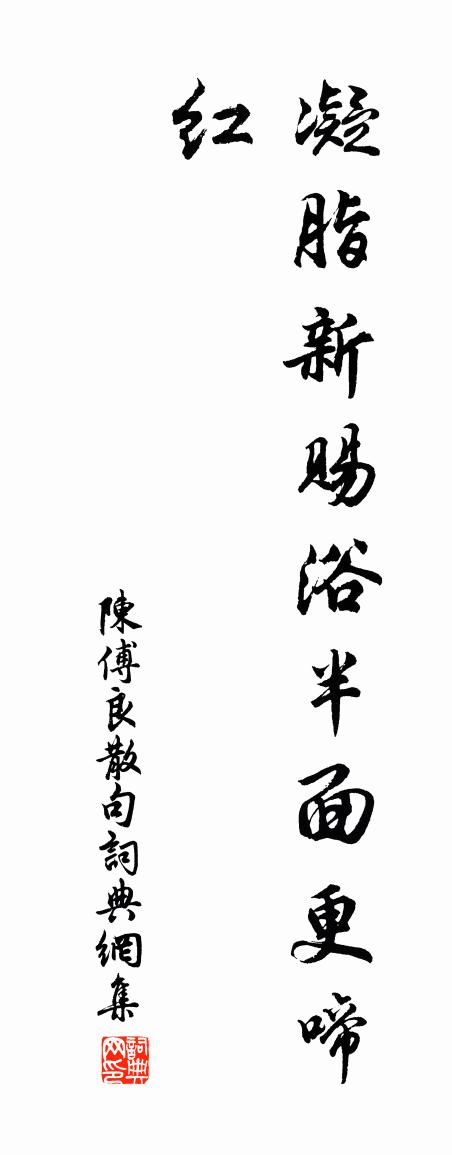 凝脂新賜浴半面更啼
红
陳傅良散句詞典網集
詞典
网印